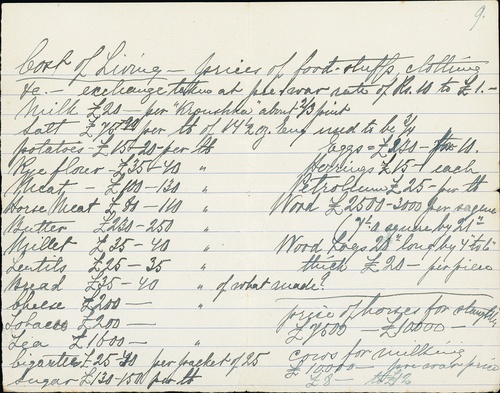 9.
Cost of Living — prices of food-stuffs, clothing
&c. — exchange taken at pre-war rate of Rs. 10 to £1.—
Milk £20 — per "Kroushka" about 2/3 pint
Salt per lb of 14½ oz used to be
potatoes £15-20 - per lb
eggs = £230 - 10.
Rye flour - £35-40 "
Herrings £15 - each
Meat — £100-130 "
Petroleum £25 - per lb
Horse Meat £80-110 "
Wood £2500-3000 per sagene
Butter £230-250 "
7 ft square by 21"
Millet £35-40 "
Wood Logs 20" long by 4 to 6
Lentils £25-35 "
thick £20 - per piece
Bread £35-40 " of what made!
Cheese £200 — "
price of horses for
Tobacco £200 —
£7500 — £10000 —
Tea £1000 — "
cows for milking
Cigarettes £25-30 per packet of 25
£10000 — pre war price
Sugar £130-150 per lb
£8 —